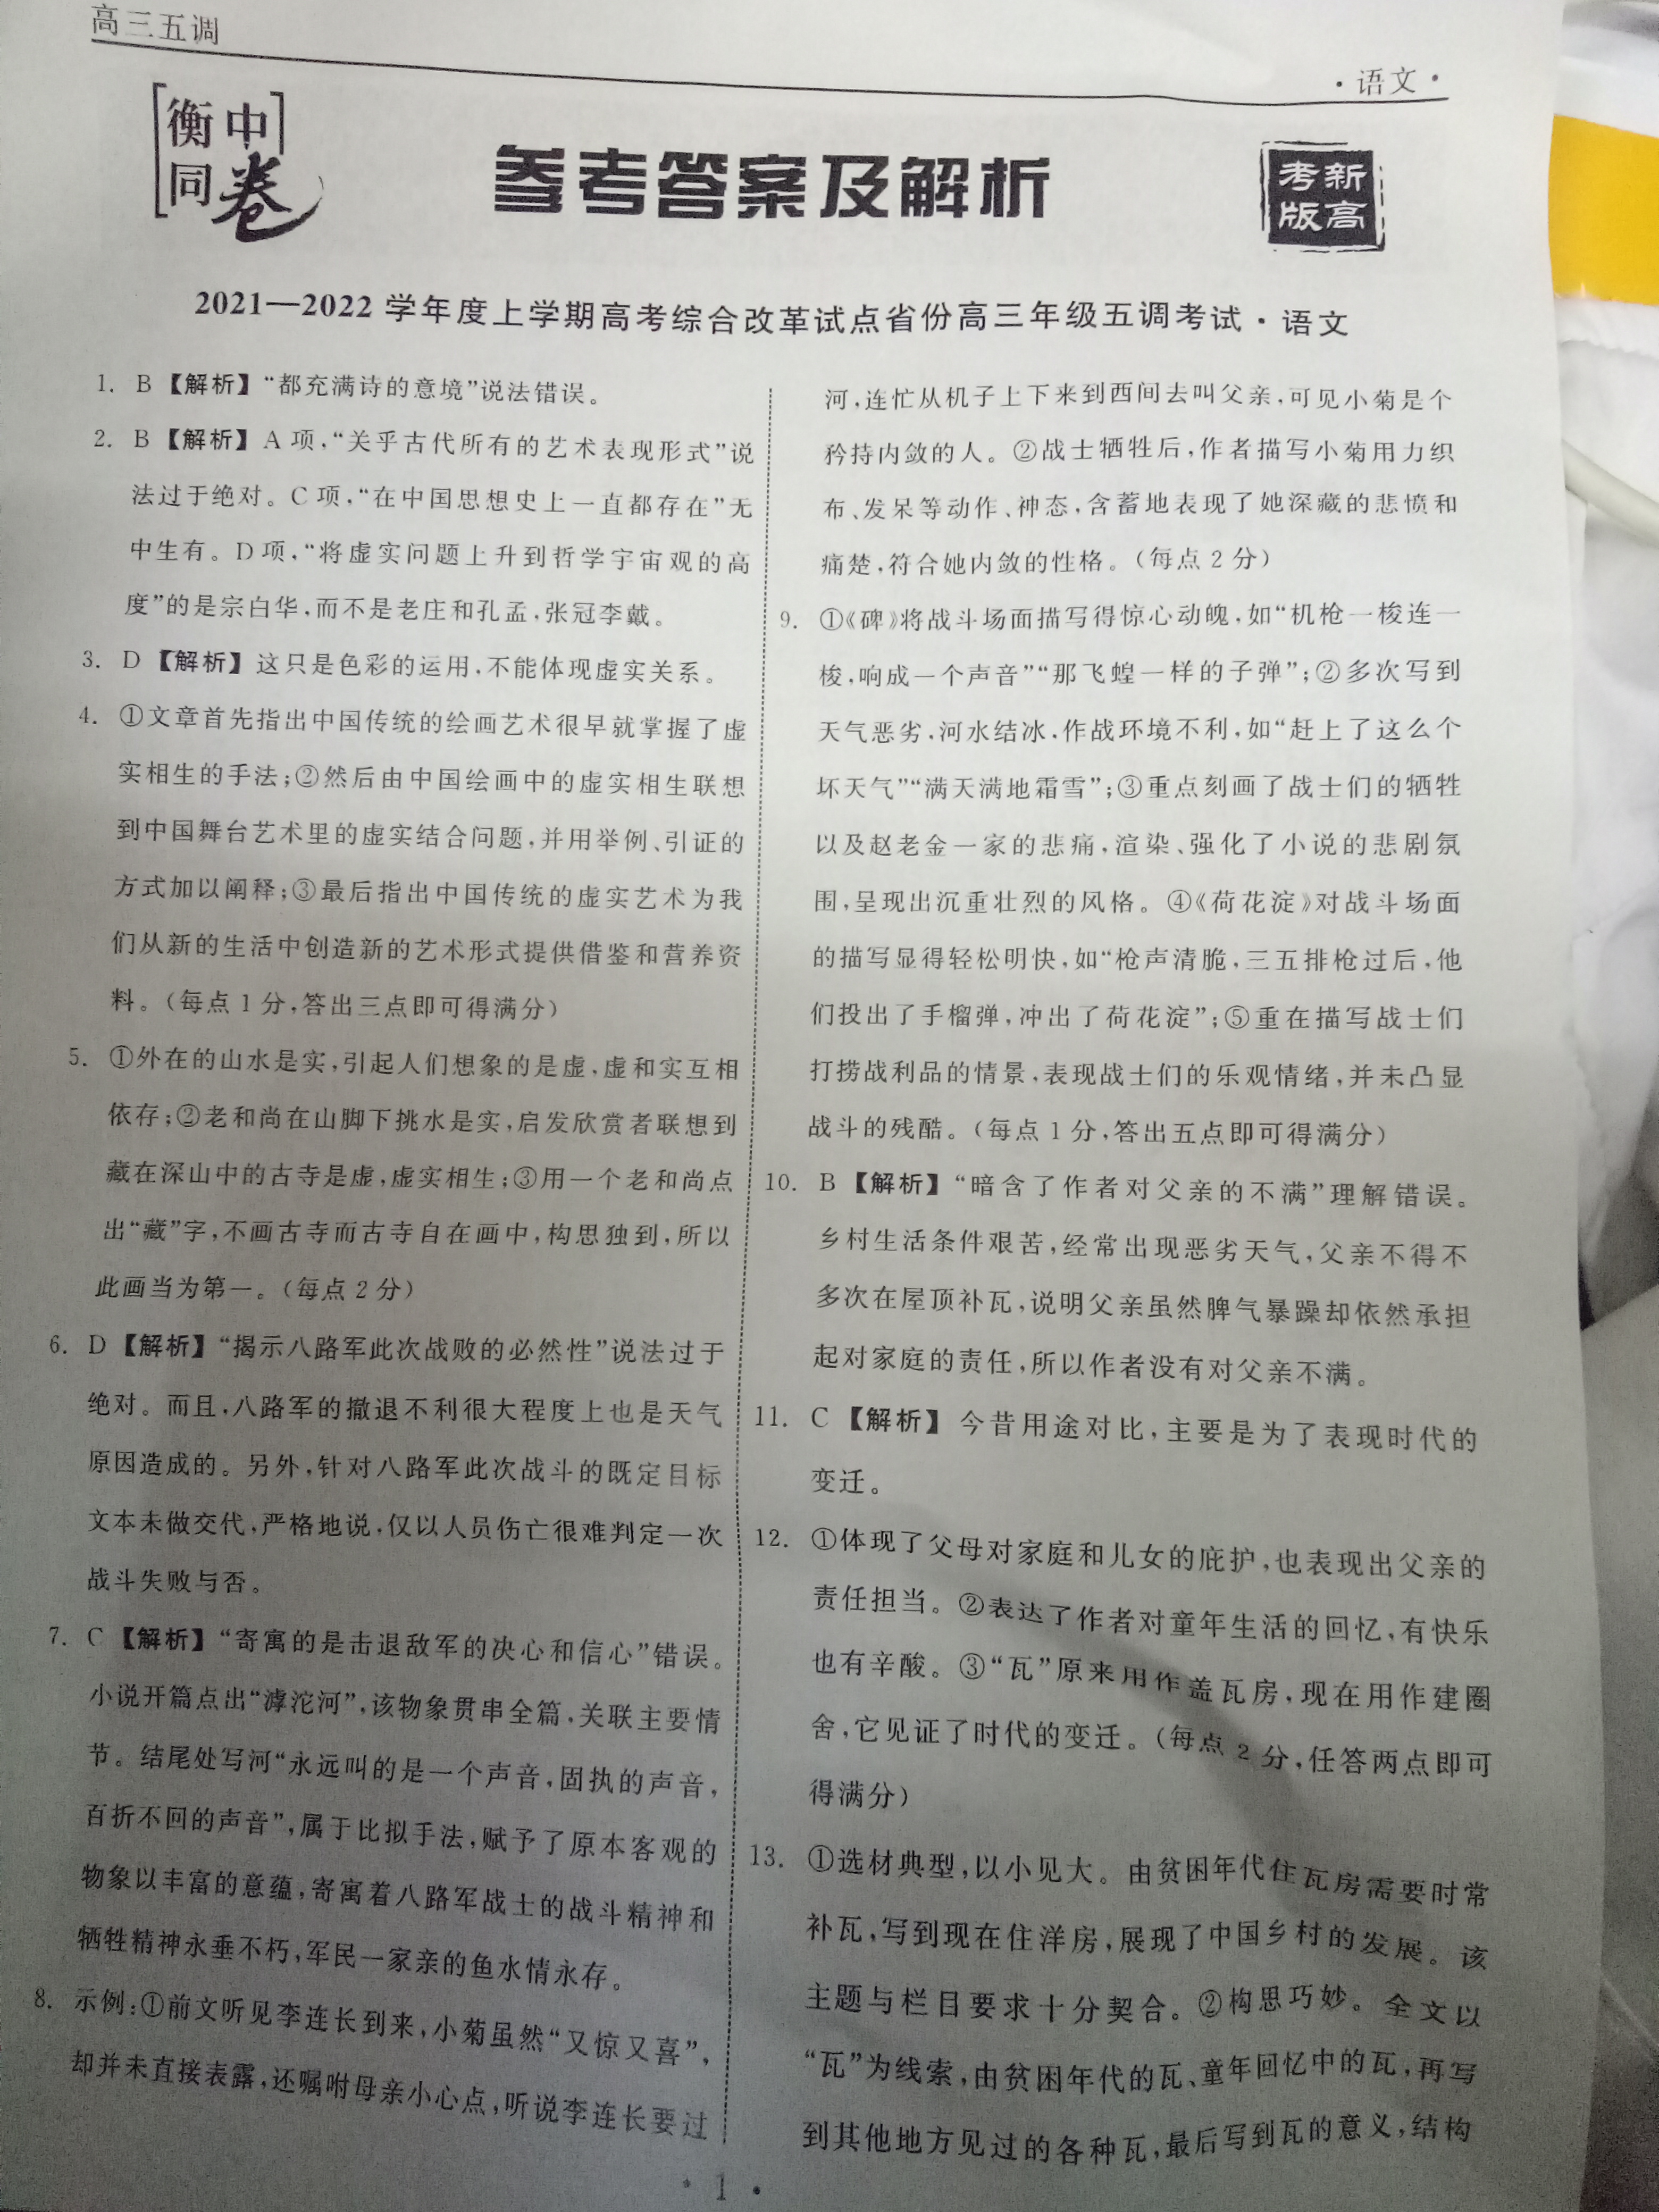 高三五调
·语文·
衡中
同卷
参考答案及解析
新高
考版
2021—2022学年度上学期高考综合改革试点省份高三年级五调考试·语文
1. B【解析】“都充满诗的意境”说法错误。
2. B【解析】A项,“关乎古代所有的艺术表现形式”说
法过于绝对。C项,“在中国思想史上一直都存在”无
中生有。D项,“将虚实问题上升到哲学宇宙观的高
度”的是宗白华,而不是老庄和孔孟,张冠李戴。
3. D【解析】这只是色彩的运用,不能体现虚实关系。
4. ①文章首先指出中国传统的绘画艺术很早就掌握了虚
实相生的手法;②然后由中国绘画中的虚实相生联想
到中国舞台艺术里的虚实结合问题,并用举例、引证的
方式加以阐释;③最后指出中国传统的虚实艺术为我
们从新的生活中创造新的艺术形式提供借鉴和营养资
料。(每点1分,答出三点即可得满分)
5. ①外在的山水是实,引起人们想象的是虚,虚和实互相
依存;②老和尚在山脚下挑水是实,启发欣赏者联想到
藏在深山中的古寺是虚,虚实相生;③用一个老和尚点
出“藏”字,不画古寺而古寺自在画中,构思独到,所以
此画当为第一。(每点2分)
6. D【解析】“揭示八路军此次战败的必然性”说法过于
绝对。而且,八路军的撤退不利很大程度上也是天气
原因造成的。另外,针对八路军此次战斗的既定目标
文本未做交代,严格地说,仅以人员伤亡很难判定一次
战斗失败与否。
7. C【解析】“寄寓的是击退敌军的决心和信心”错误。
小说开篇点出“滹沱河”,该物象贯串全篇,关联主要情
节。结尾处写河“永远叫的是一个声音,固执的声音,
百折不回的声音”,属于比拟手法,赋予了原本客观的
物象以丰富的意蕴,寄寓着八路军战士的战斗精神和
牺牲精神永垂不朽,军民一家亲的鱼水情永存。
8. 示例:①前文听见李连长到来,小菊虽然“又惊又喜”,
却并未直接表露,还嘱咐母亲小心点,听说李连长要过
河,连忙从机子上下来到西间去叫父亲,可见小菊是个
矜持内敛的人。②战士牺牲后,作者描写小菊用力织
布、发呆等动作、神态,含蓄地表现了她深藏的悲愤和
痛楚,符合她内敛的性格。(每点2分)
9. ①《碑》将战斗场面描写得惊心动魄,如“机枪一梭连一
梭,响成一个声音”“那飞蝗一样的子弹”;②多次写到
天气恶劣,河水结冰,作战环境不利,如“赶上了这么个
坏天气”“满天满地霜雪”;③重点刻画了战士们的牺牲
以及赵老金一家的悲痛,渲染、强化了小说的悲剧氛
围,呈现出沉重壮烈的风格。④《荷花淀》对战斗场面
的描写显得轻松明快,如“枪声清脆,三五排枪过后,他
们投出了手榴弹,冲出了荷花淀”;⑤重在描写战士们
打捞战利品的情景,表现战士们的乐观情绪,并未凸显
战斗的残酷。(每点1分,答出五点即可得满分)
10. B【解析】“暗含了作者对父亲的不满”理解错误。
乡村生活条件艰苦,经常出现恶劣天气,父亲不得不
多次在屋顶补瓦,说明父亲虽然脾气暴躁却依然承担
起对家庭的责任,所以作者没有对父亲不满。
11. C【解析】今昔用途对比,主要是为了表现时代的
变迁。
12. ①体现了父母对家庭和儿女的庇护,也表现出父亲的
责任担当。②表达了作者对童年生活的回忆,有快乐
也有辛酸。③“瓦”原来用作盖瓦房,现在用作建圈
舍,它见证了时代的变迁。(每点2分,任答两点即可
得满分)
13. ①选材典型,以小见大。由贫困年代住瓦房需要时常
补瓦,写到现在住洋房,展现了中国乡村的发展。该
主题与栏目要求十分契合。②构思巧妙。全文以
“瓦”为线索,由贫困年代的瓦、童年回忆中的瓦,再写
到其他地方见过的各种瓦,最后写到瓦的意义,结构
·1·